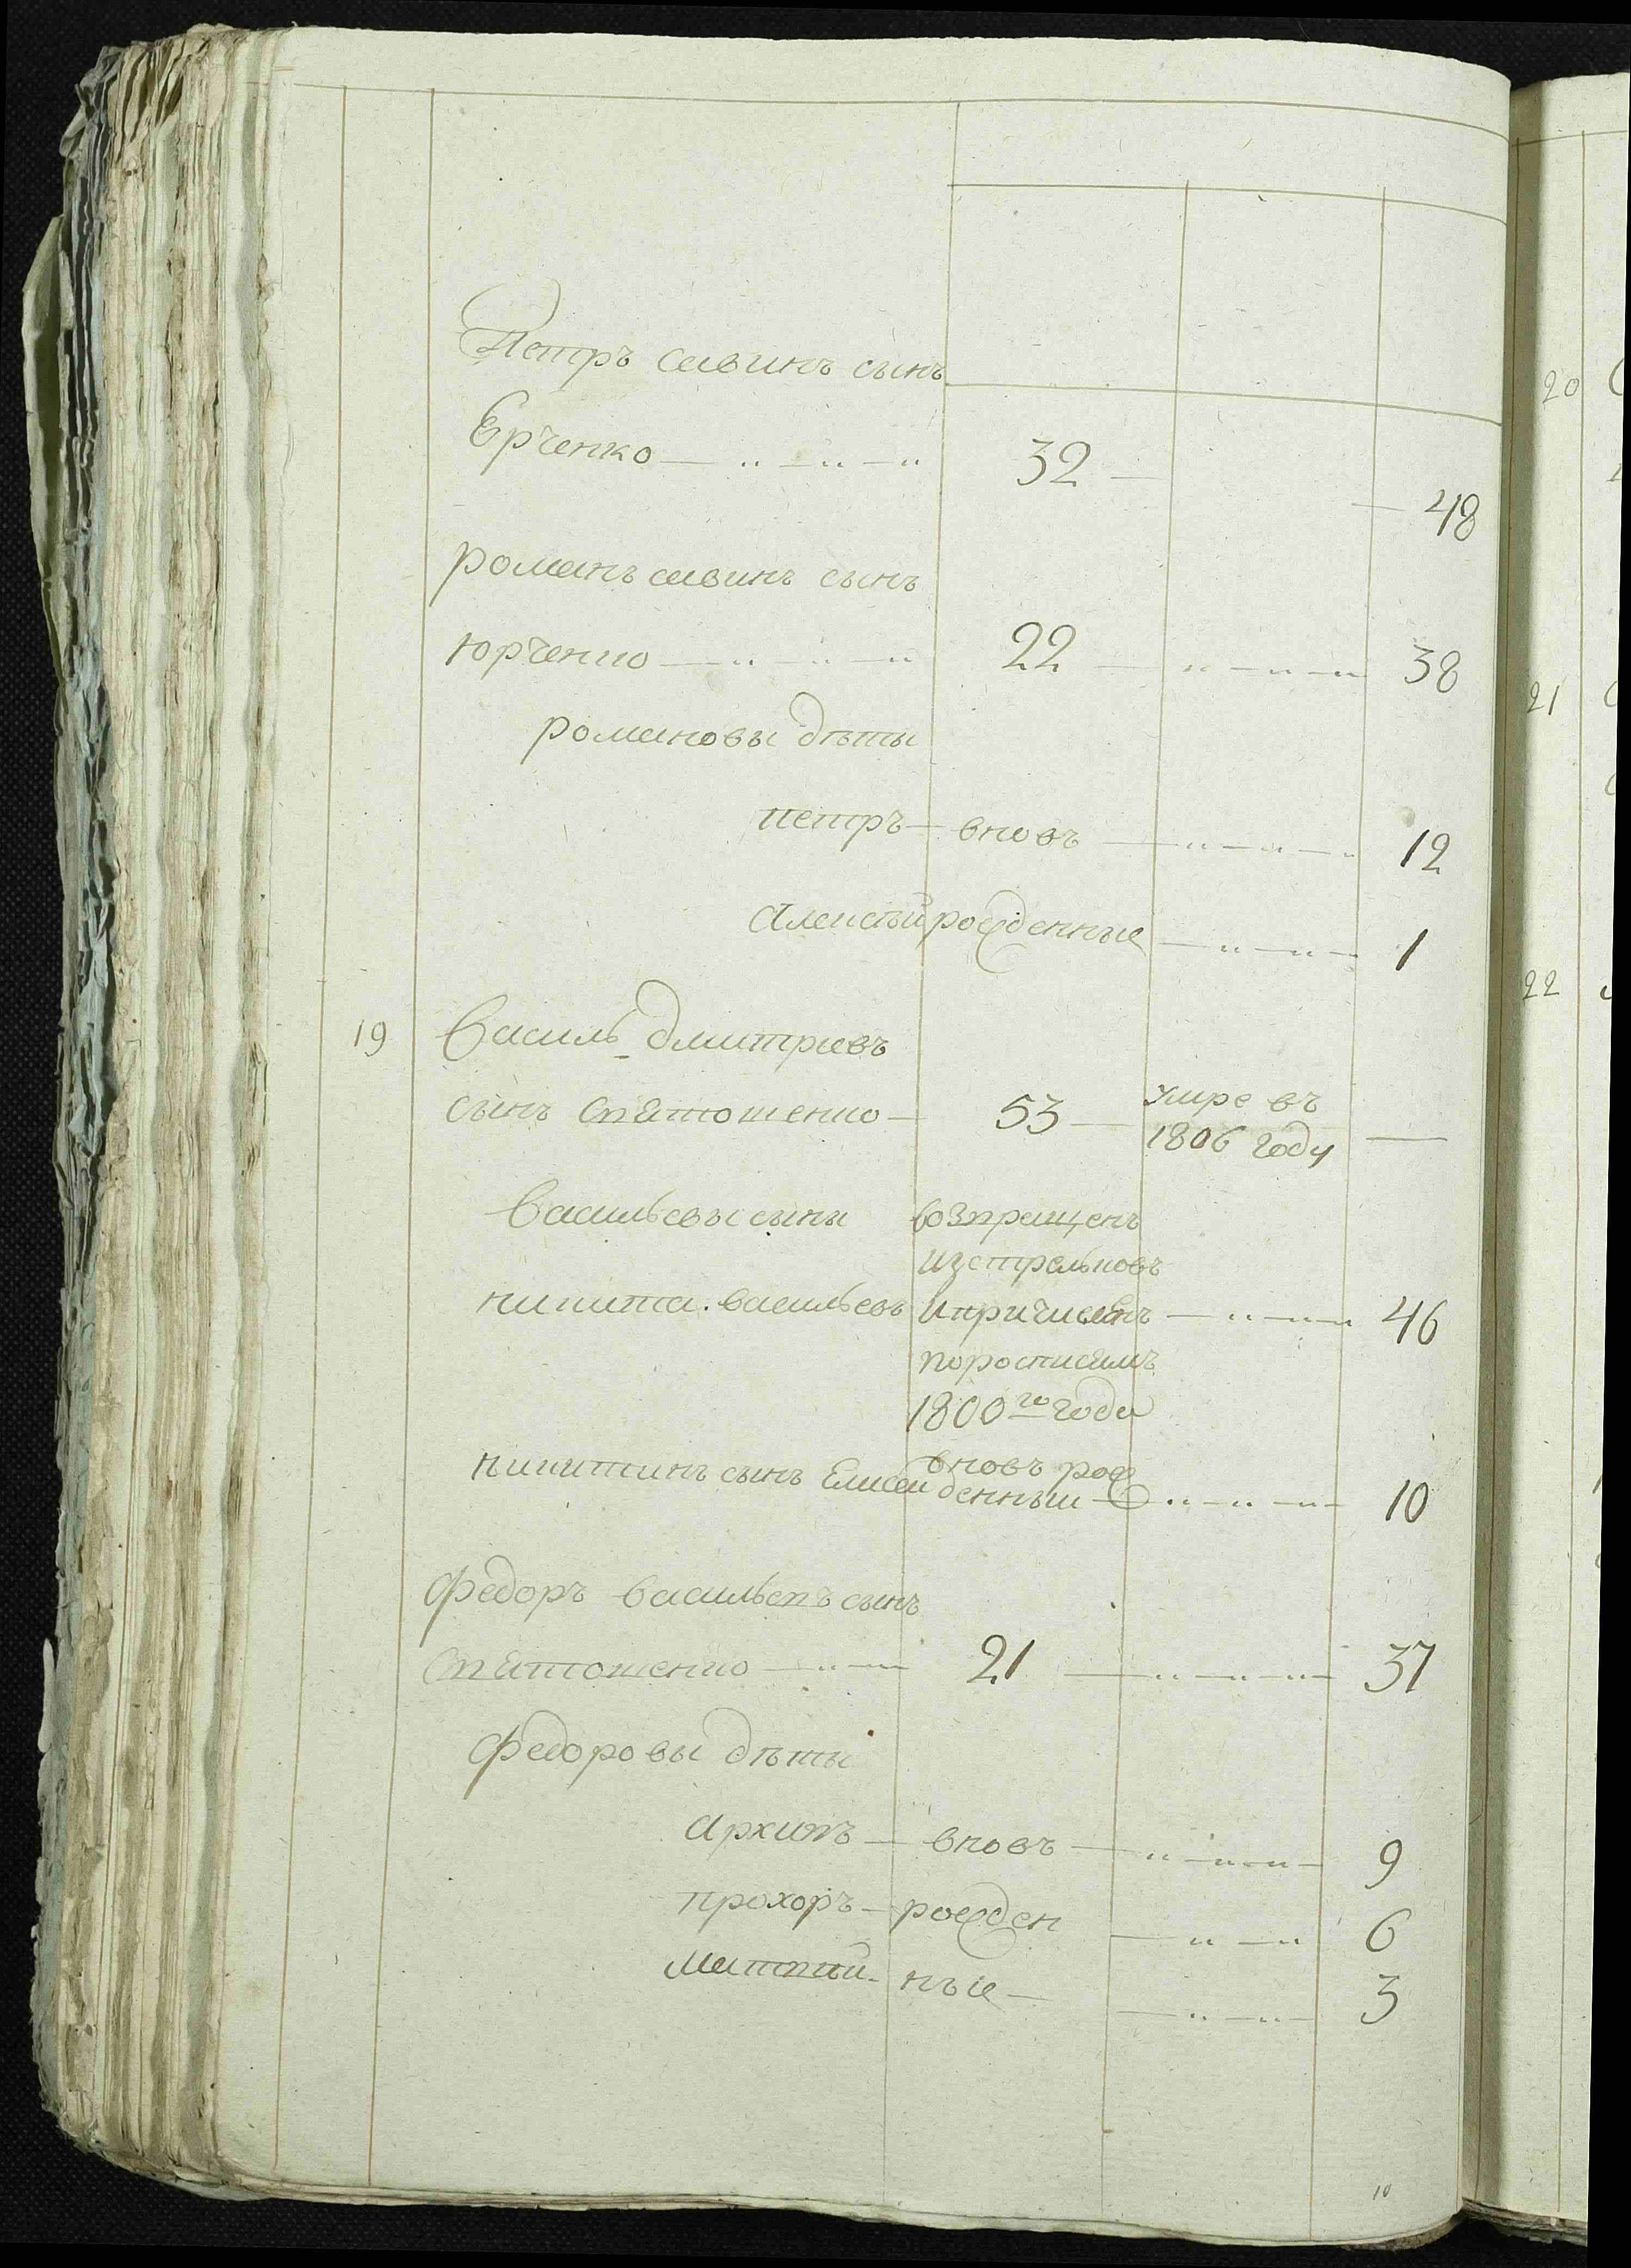 Петръ савинъ сынъ
Ерченко — 32 — 48
романъ савинъ сынъ
юрченко — 22 — 38
романовы дѣты
петръ — вновь — 12
Алексѣй рожденные — 1
19 Василь Дмитриевъ
сынъ Святошенко — 53 — умре въ
1806 году —
Васильевы сыны возвращенъ
изстрельковъ
никита васильевъ ипричисленъ — 46
поросписямъ
1800го года
никитинъ сынъ Елисей вновь рож
денныи — 10
Федоръ васильевъ сынъ
Святошенко — 21 — 37
Федоровы дѣты
архипъ — вновь — 9
прохоръ — рожден — 6
Матвий — ные — 3
10
20
21
22